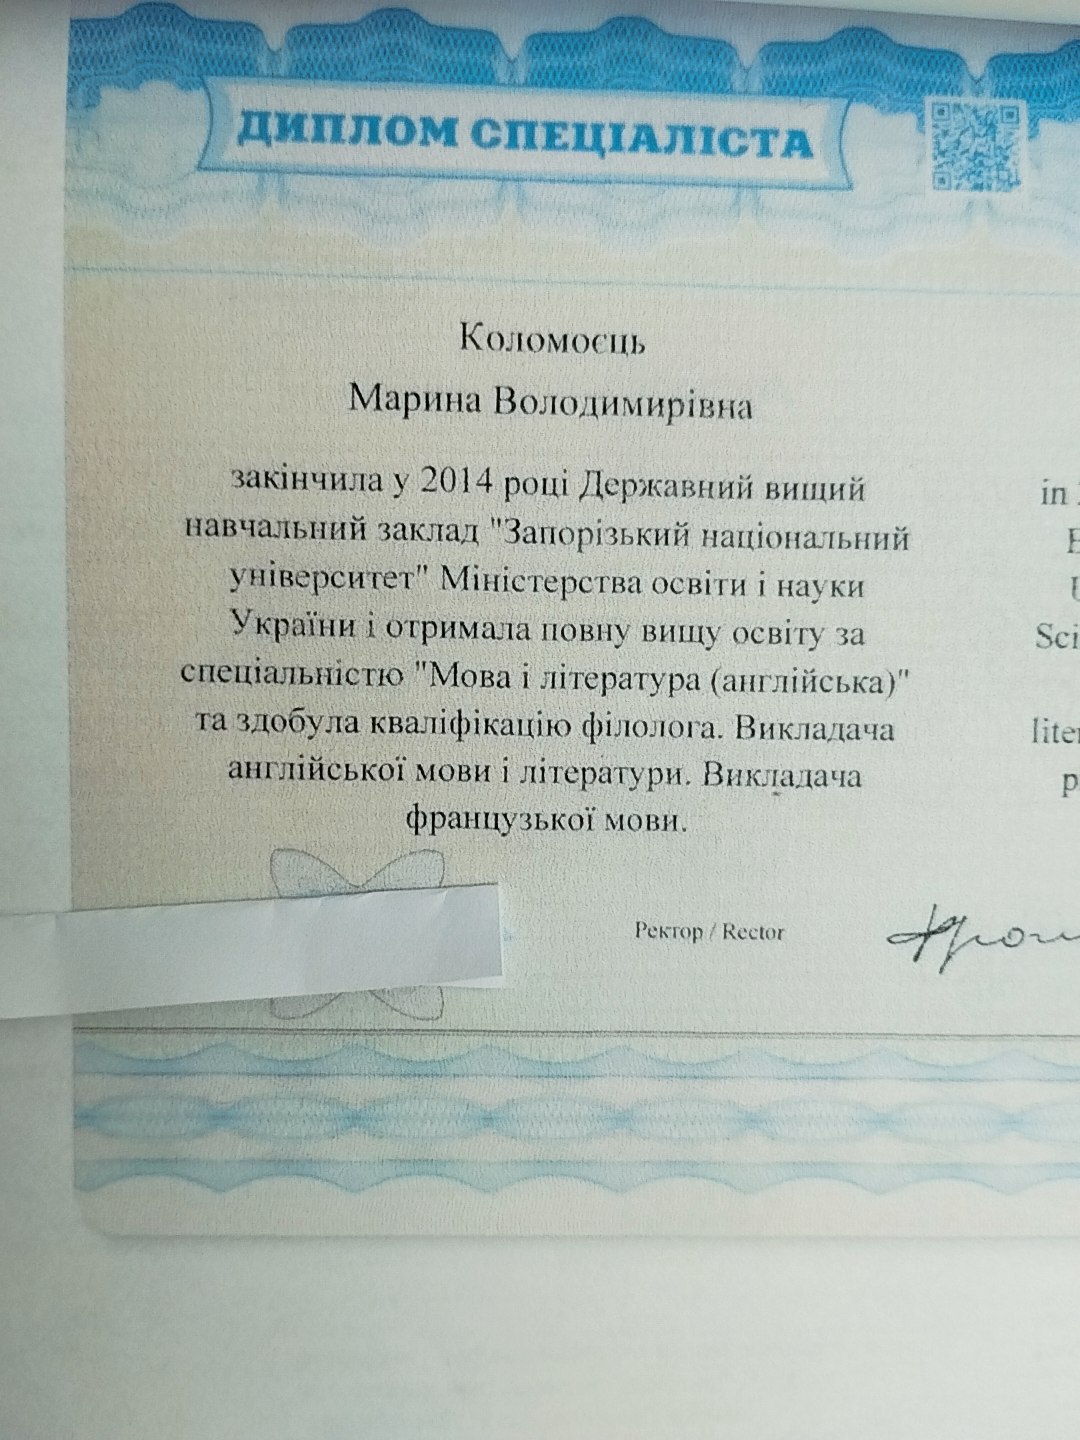 ДИПЛОМ СПЕЦІАЛІСТА
Коломоєць
Марина Володимирівна
закінчила у 2014 році Державний вищий
навчальний заклад "Запорізький національний
університет" Міністерства освіти і науки
України і отримала повну вищу освіту за
спеціальністю "Мова і література (англійська)"
та здобула кваліфікацію філолога. Викладача
англійської мови і літератури. Викладача
французької мови.
in
Ректор / Rector